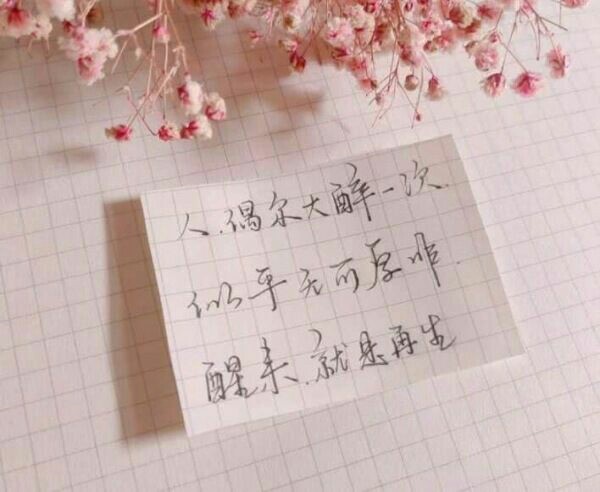 人.偶尔大醉一次.
似乎无可厚非.
醒来.就是再生